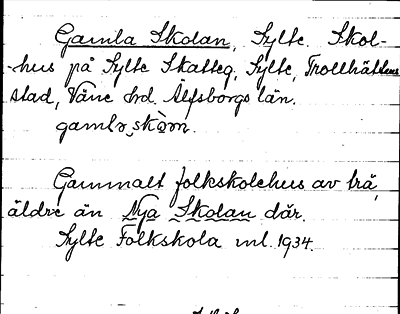 Gamla Skolan, Sylte. Skol-
-hus på Sylte Skatteg, Sylte, Trollhättans
stad, Väne hrd. Älfsborgs län.
Gammalt folkskolehus av trä,
äldre än Nya Skolan där.
Sylte Folkskola inl. 1934.